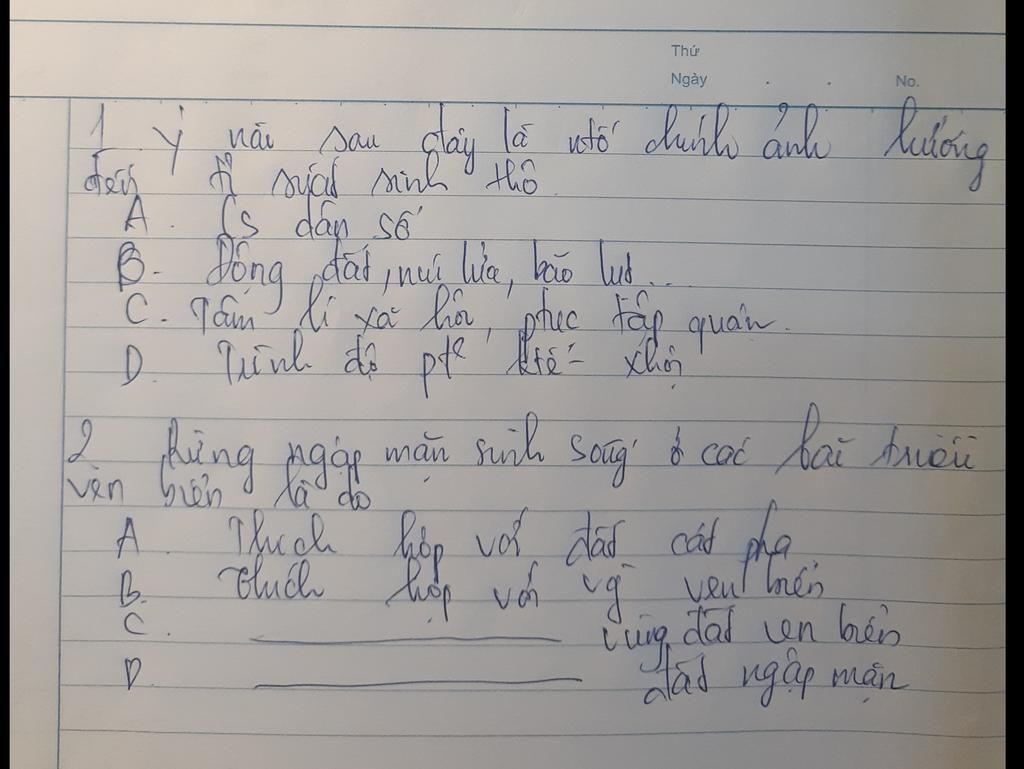 Thứ
Ngày . . No.
1. Ý nào sau đây là ntố chính ảnh hưởng
đến tỉ suất sinh thô
A. Cs dân số
B. Động đất, núi lửa, bão lụt...
C. Tâm lí xã hội, phục tập quán.
D. Trình độ ptr ktế - xhội
2 Rừng ngập mặn sinh sống ở các bãi triều
ven biển là do
A. Thích hợp với đất cát pha
B. Thích hợp với vg ven biển
C. ________ vùng đất ven biển
D. ________ đất ngập mặn